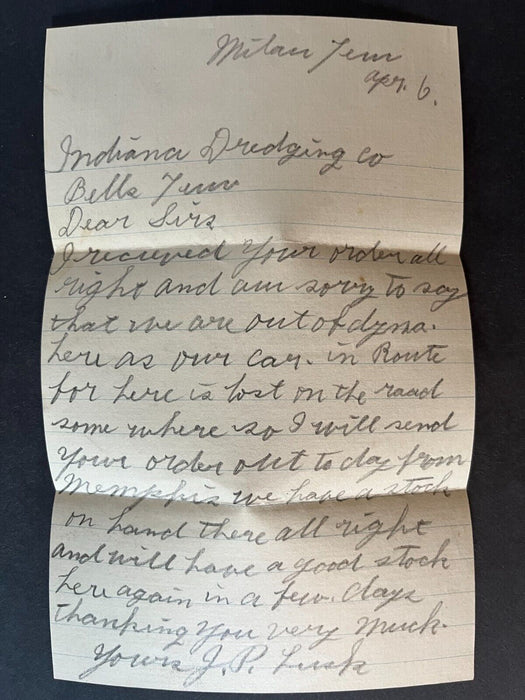 Milan Tenn
apr. 6.
Indiana Dredging Co
Bells Tenn
Dear Sirs
I recieved Your order all
right and am sorry to say
that we are out of dyna.
here as our car. in Route
for here is lost on the raad
some where so I will send
Your order out to day from
Memphis we have a stock
on hand there all right
and will have a good stock
here again in a few. days
thanking You very much.
Yours J. P. Lusk